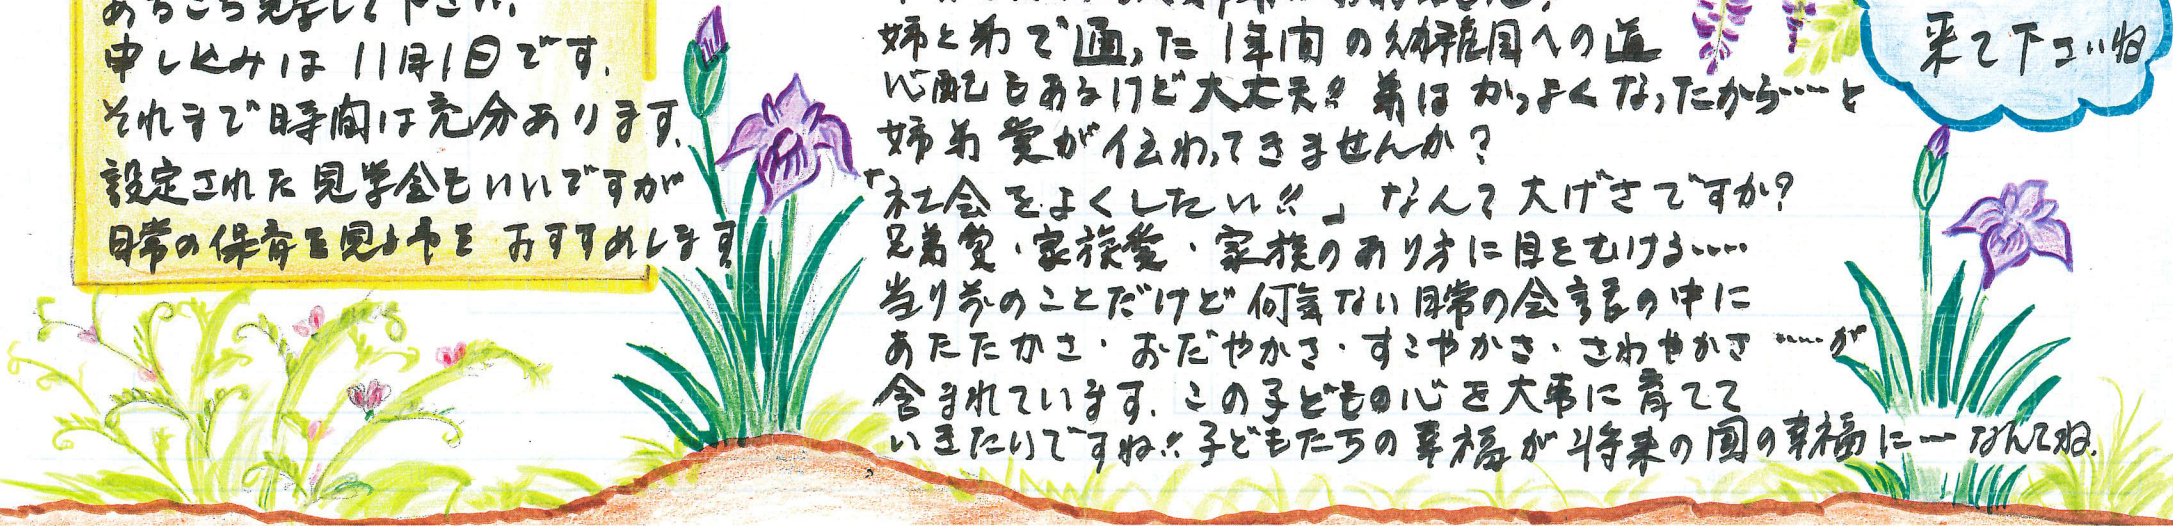 あちこち見学して下さい。
申し込みは11月1日です。
それまで時間は充分あります。
設定された見学会もいいですが
日常の保育を見る事をおすすめします。
姉と弟で通った1年間の幼稚園への道
心配もあるけど大丈夫!! 弟はかっよくなったから……と
姉弟愛が伝わってきませんか?
「社会をよくしたい!!」なんて大げさですか?
兄弟愛・家族愛・家族のあり方に目をむける……
当り前のことだけど何気ない日常の会話の中に
あたたかさ・おだやかさ・すこやかさ・さわやかさ……が
含まれています。この子どもの心を大事に育てて
いきたいですね!! 子どもたちの幸福が将来の国の幸福に……なんてね。
来て下さいね